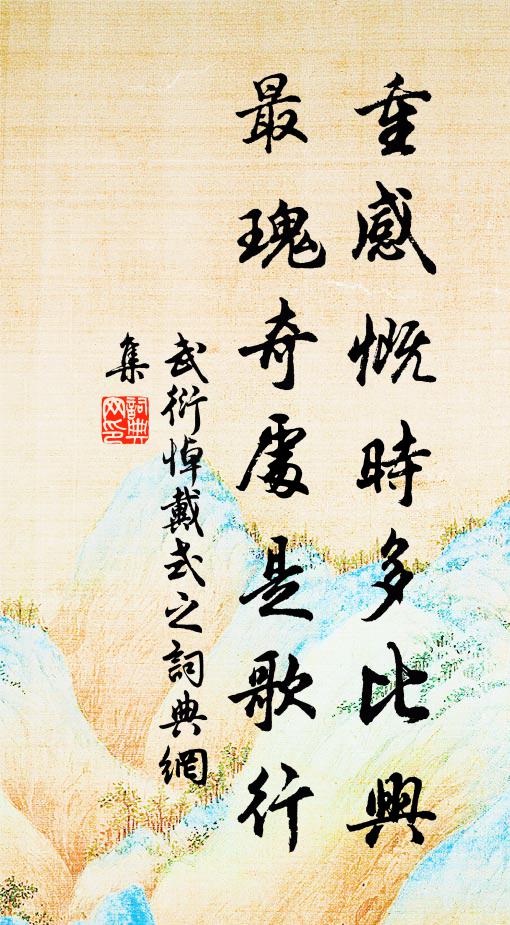 重感慨時多比興
最瑰奇處是歌行
武衍悼戴式之詞典網
集
詞典網印